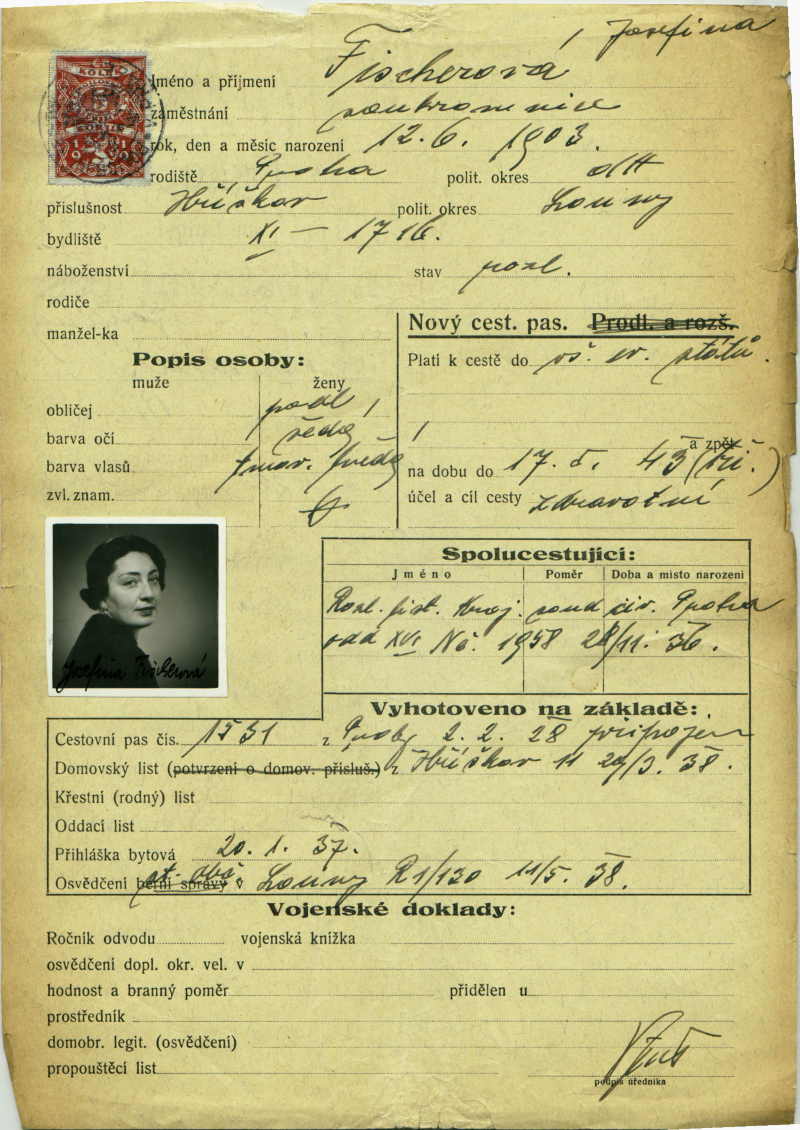 Jméno a příjmení Fischerová, Josefina
zaměstnání soukromnice
rok, den a měsíc narození 12. 6. 1903.
rodiště Praha polit. okres dtt
příslušnost Hříškov polit. okres Louny
bydliště XI – 1716.
náboženství stav rozl.
rodiče
manžel-ka
Nový cest. pas. Prodl. a rozš.
Platí k cestě do vš. ev. států.
a zpět
na dobu do 17. 5. 43 (tři.)
účel a cíl cesty zdravotní
Popis osoby:
muže ženy
obličej podl.
barva očí šedé
barva vlasů tmav. hnědé
zvl. znam.
Josefina Fischerová
Spolucestující:
Jméno Poměr Doba a místo narození
Rozl. list. Kraj. soud civ. Praha
odd XVI Nc. 1958 28/11. 36.
Vyhotoveno na základě:
Cestovní pas čís. 1531 z Prahy 2. 2. 28 připojen
Domovský list (potvrzení o domov. přísluš.) z Hříškov 11 29/3. 38.
Křestní (rodný) list
Oddací list
Přihláška bytová 20. 1. 37.
Osvědčení berní správy v st. obč. Louny R1/130 11/5. 38.
Vojenské doklady:
Ročník odvodu vojenská knížka
osvědčení dopl. okr. vel. v
hodnost a branný poměr přidělen u
prostředník
domobr. legit. (osvědčení)
propouštěcí list
podpis úředníka